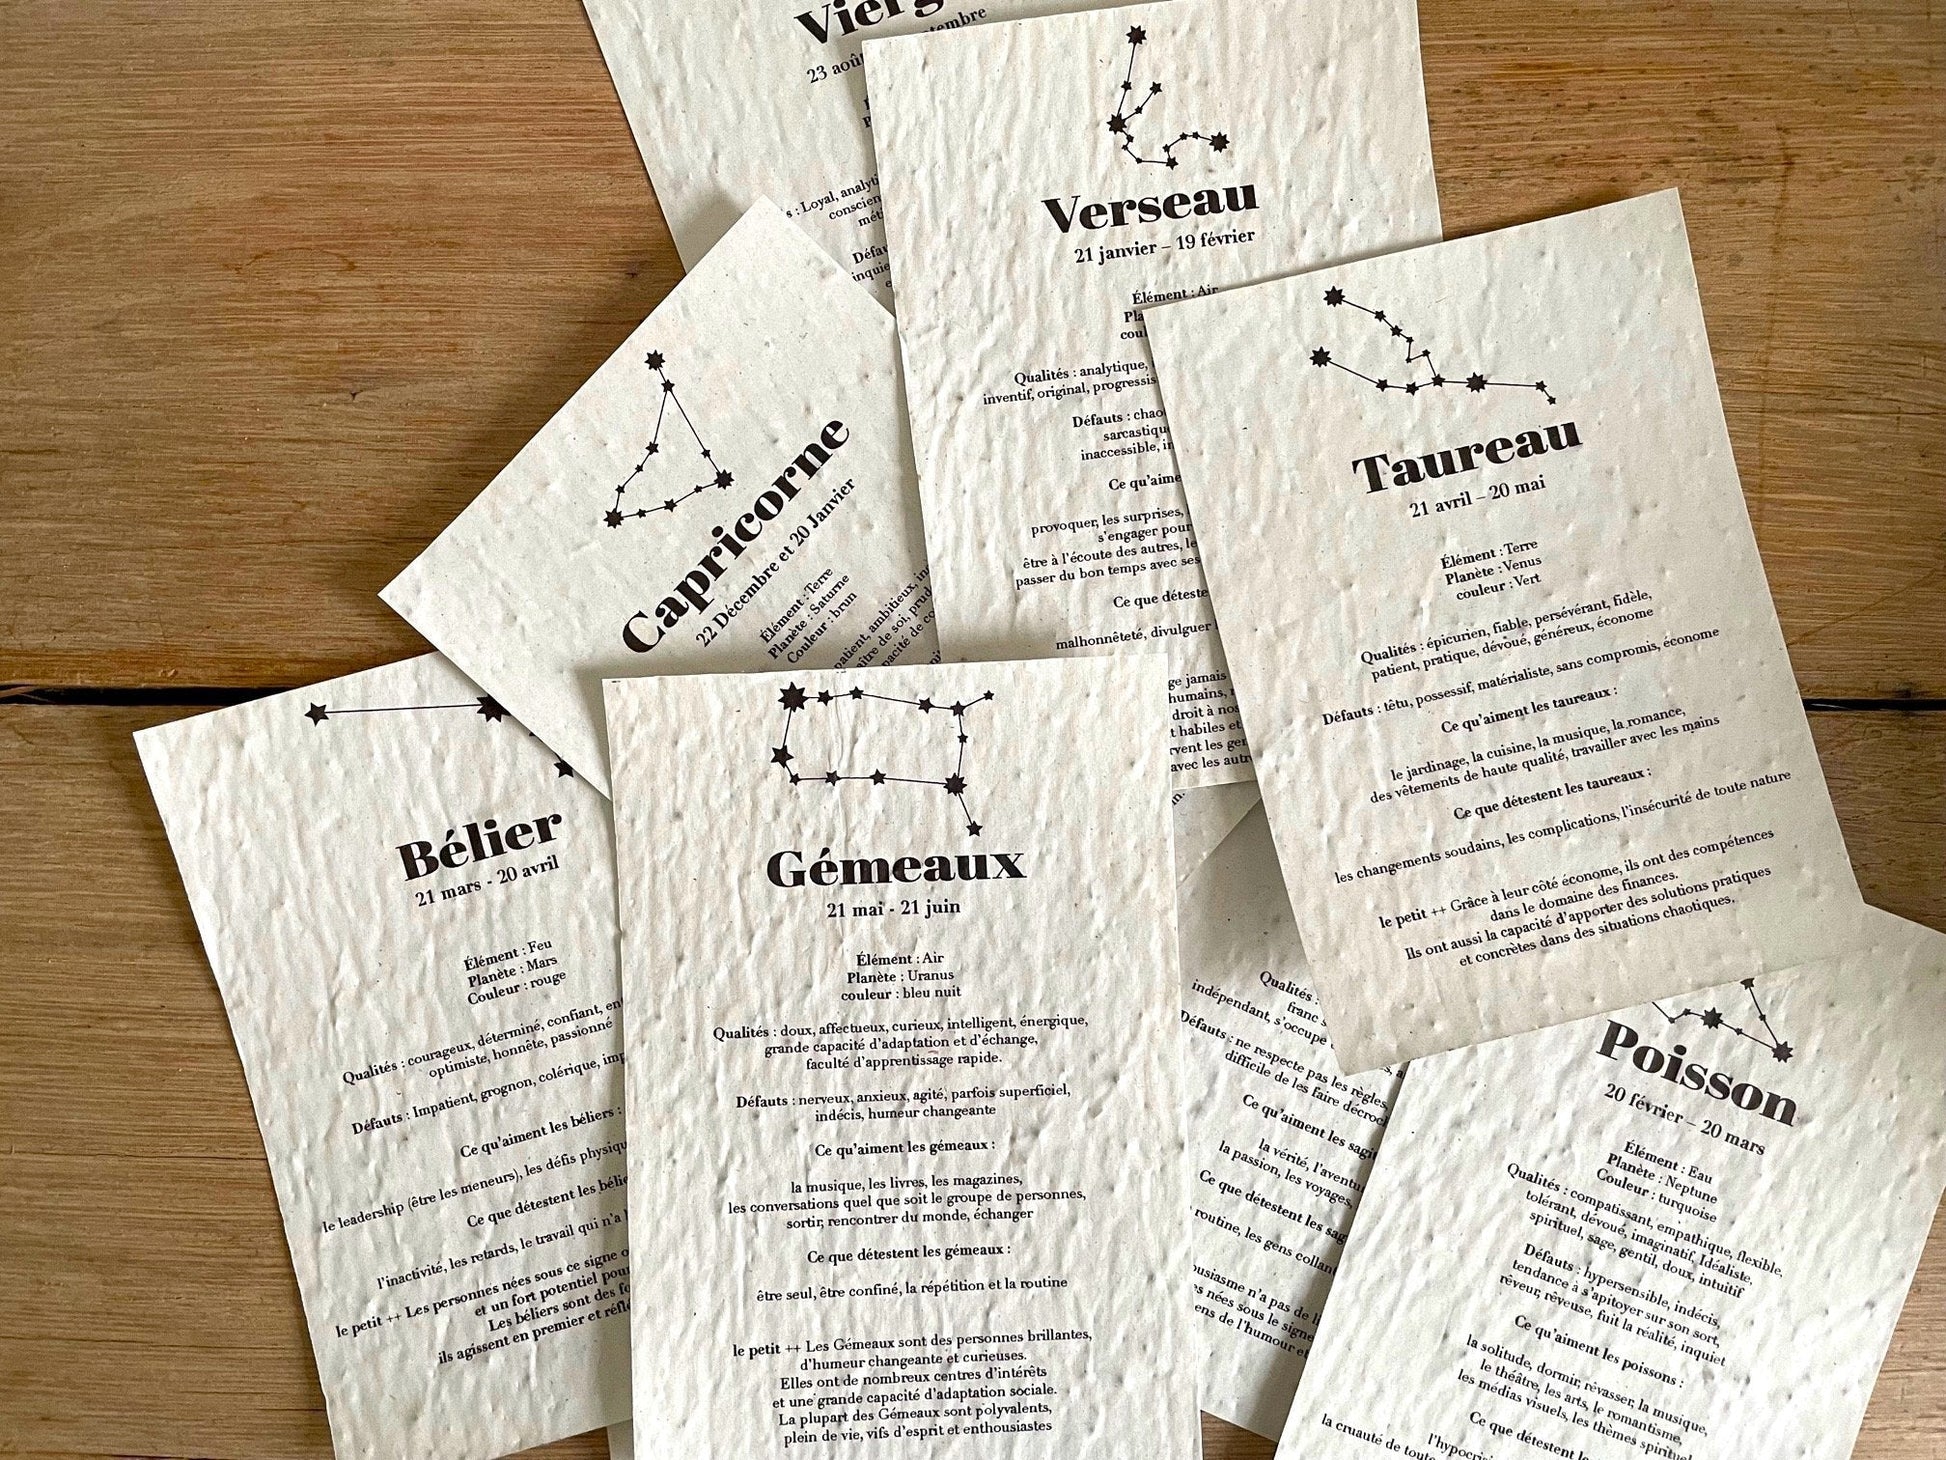 23 août
Loyal, analyti
Verseau
21 janvier – 19 février
Élément : Air
Qualités : analytique,
inventif, original, progressis
Défauts : chao
sarcastiqu
inaccessible, i
Ce qu'aime
provoquer, les surprises,
s'engager pour
être à l'écoute des autres, le
passer du bon temps avec ses
Ce que déteste
malhonnêteté, divulguer
ge jamais
humains,
droit à nos
t habiles et
rvent les ge
avec les autr
Taureau
21 avril – 20 mai
Élément : Terre
Planète : Venus
couleur : Vert
Qualités : épicurien, fiable, persévérant, fidèle,
patient, pratique, dévoué, généreux, économe
Défauts : têtu, possessif, matérialiste, sans compromis, économe
Ce qu'aiment les taureaux :
le jardinage, la cuisine, la musique, la romance,
des vêtements de haute qualité, travailler avec les mains
Ce que détestent les taureaux :
les changements soudains, les complications, l'insécurité de toute nature
le petit ++ Grâce à leur côté économe, ils ont des compétences
dans le domaine des finances.
Ils ont aussi la capacité d'apporter des solutions pratiques
et concrètes dans des situations chaotiques.
Capricorne
22 Décembre et 20 Janvier
Élément : Terre
Planète : Saturne
Couleur : brun
patient, ambitieux,
ître de soi, prud
capacité de co
Bélier
21 mars - 20 avril
Élément : Feu
Planète : Mars
Couleur : rouge
Qualités : courageux, déterminé, confiant, en
optimiste, honnête, passionné
Défauts : Impatient, grognon, colérique, imp
Ce qu'aiment les béliers :
le leadership (être les meneurs), les défis physiqu
Ce que détestent les bélie
l'inactivité, les retards, le travail qui n'a
le petit ++ Les personnes nées sous ce signe o
et un fort potentiel pour
Les béliers sont des fo
ils agissent en premier et réfl
Gémeaux
21 mai - 21 juin
Élément : Air
Planète : Uranus
couleur : bleu nuit
Qualités : doux, affectueux, curieux, intelligent, énergique,
grande capacité d'adaptation et d'échange,
faculté d'apprentissage rapide.
Défauts : nerveux, anxieux, agité, parfois superficiel,
indécis, humeur changeante
Ce qu'aiment les gémeaux :
la musique, les livres, les magazines,
les conversations quel que soit le groupe de personnes,
sortir, rencontrer du monde, échanger
Ce que détestent les gémeaux :
être seul, être confiné, la répétition et la routine
le petit ++ Les Gémeaux sont des personnes brillantes,
d'humeur changeante et curieuses.
Elles ont de nombreux centres d'intérêts
et une grande capacité d'adaptation sociale.
La plupart des Gémeaux sont polyvalents,
plein de vie, vifs d'esprit et enthousiastes
Qualités :
franc
indépendant, s'occupe
Défauts : ne respecte pas les règles,
difficile de les faire décroc
Ce qu'aiment les sagit
la vérité, l'aventu
la passion, les voyages,
Ce que détestent les sag
routine, les gens collant
ousiasme n'a pas de li
s nées sous le signe
ens de l'humour et
Poisson
20 février – 20 mars
Élément : Eau
Planète : Neptune
Couleur : turquoise
Qualités : compatissant, empathique, flexible,
tolérant, dévoué, imaginatif, Idéaliste,
spirituel, sage, gentil, doux, intuitif
Défauts : hypersensible, indécis,
tendance à s'apitoyer sur son sort,
rêveur, rêveuse, fuit la réalité, inquiet
Ce qu'aiment les poissons :
la solitude, dormir, rêvasser, la musique,
le théâtre, les arts, le romantisme,
les médias visuels, les thèmes spirituel
Ce que détestent le
l'hypocris
la cruauté de toute